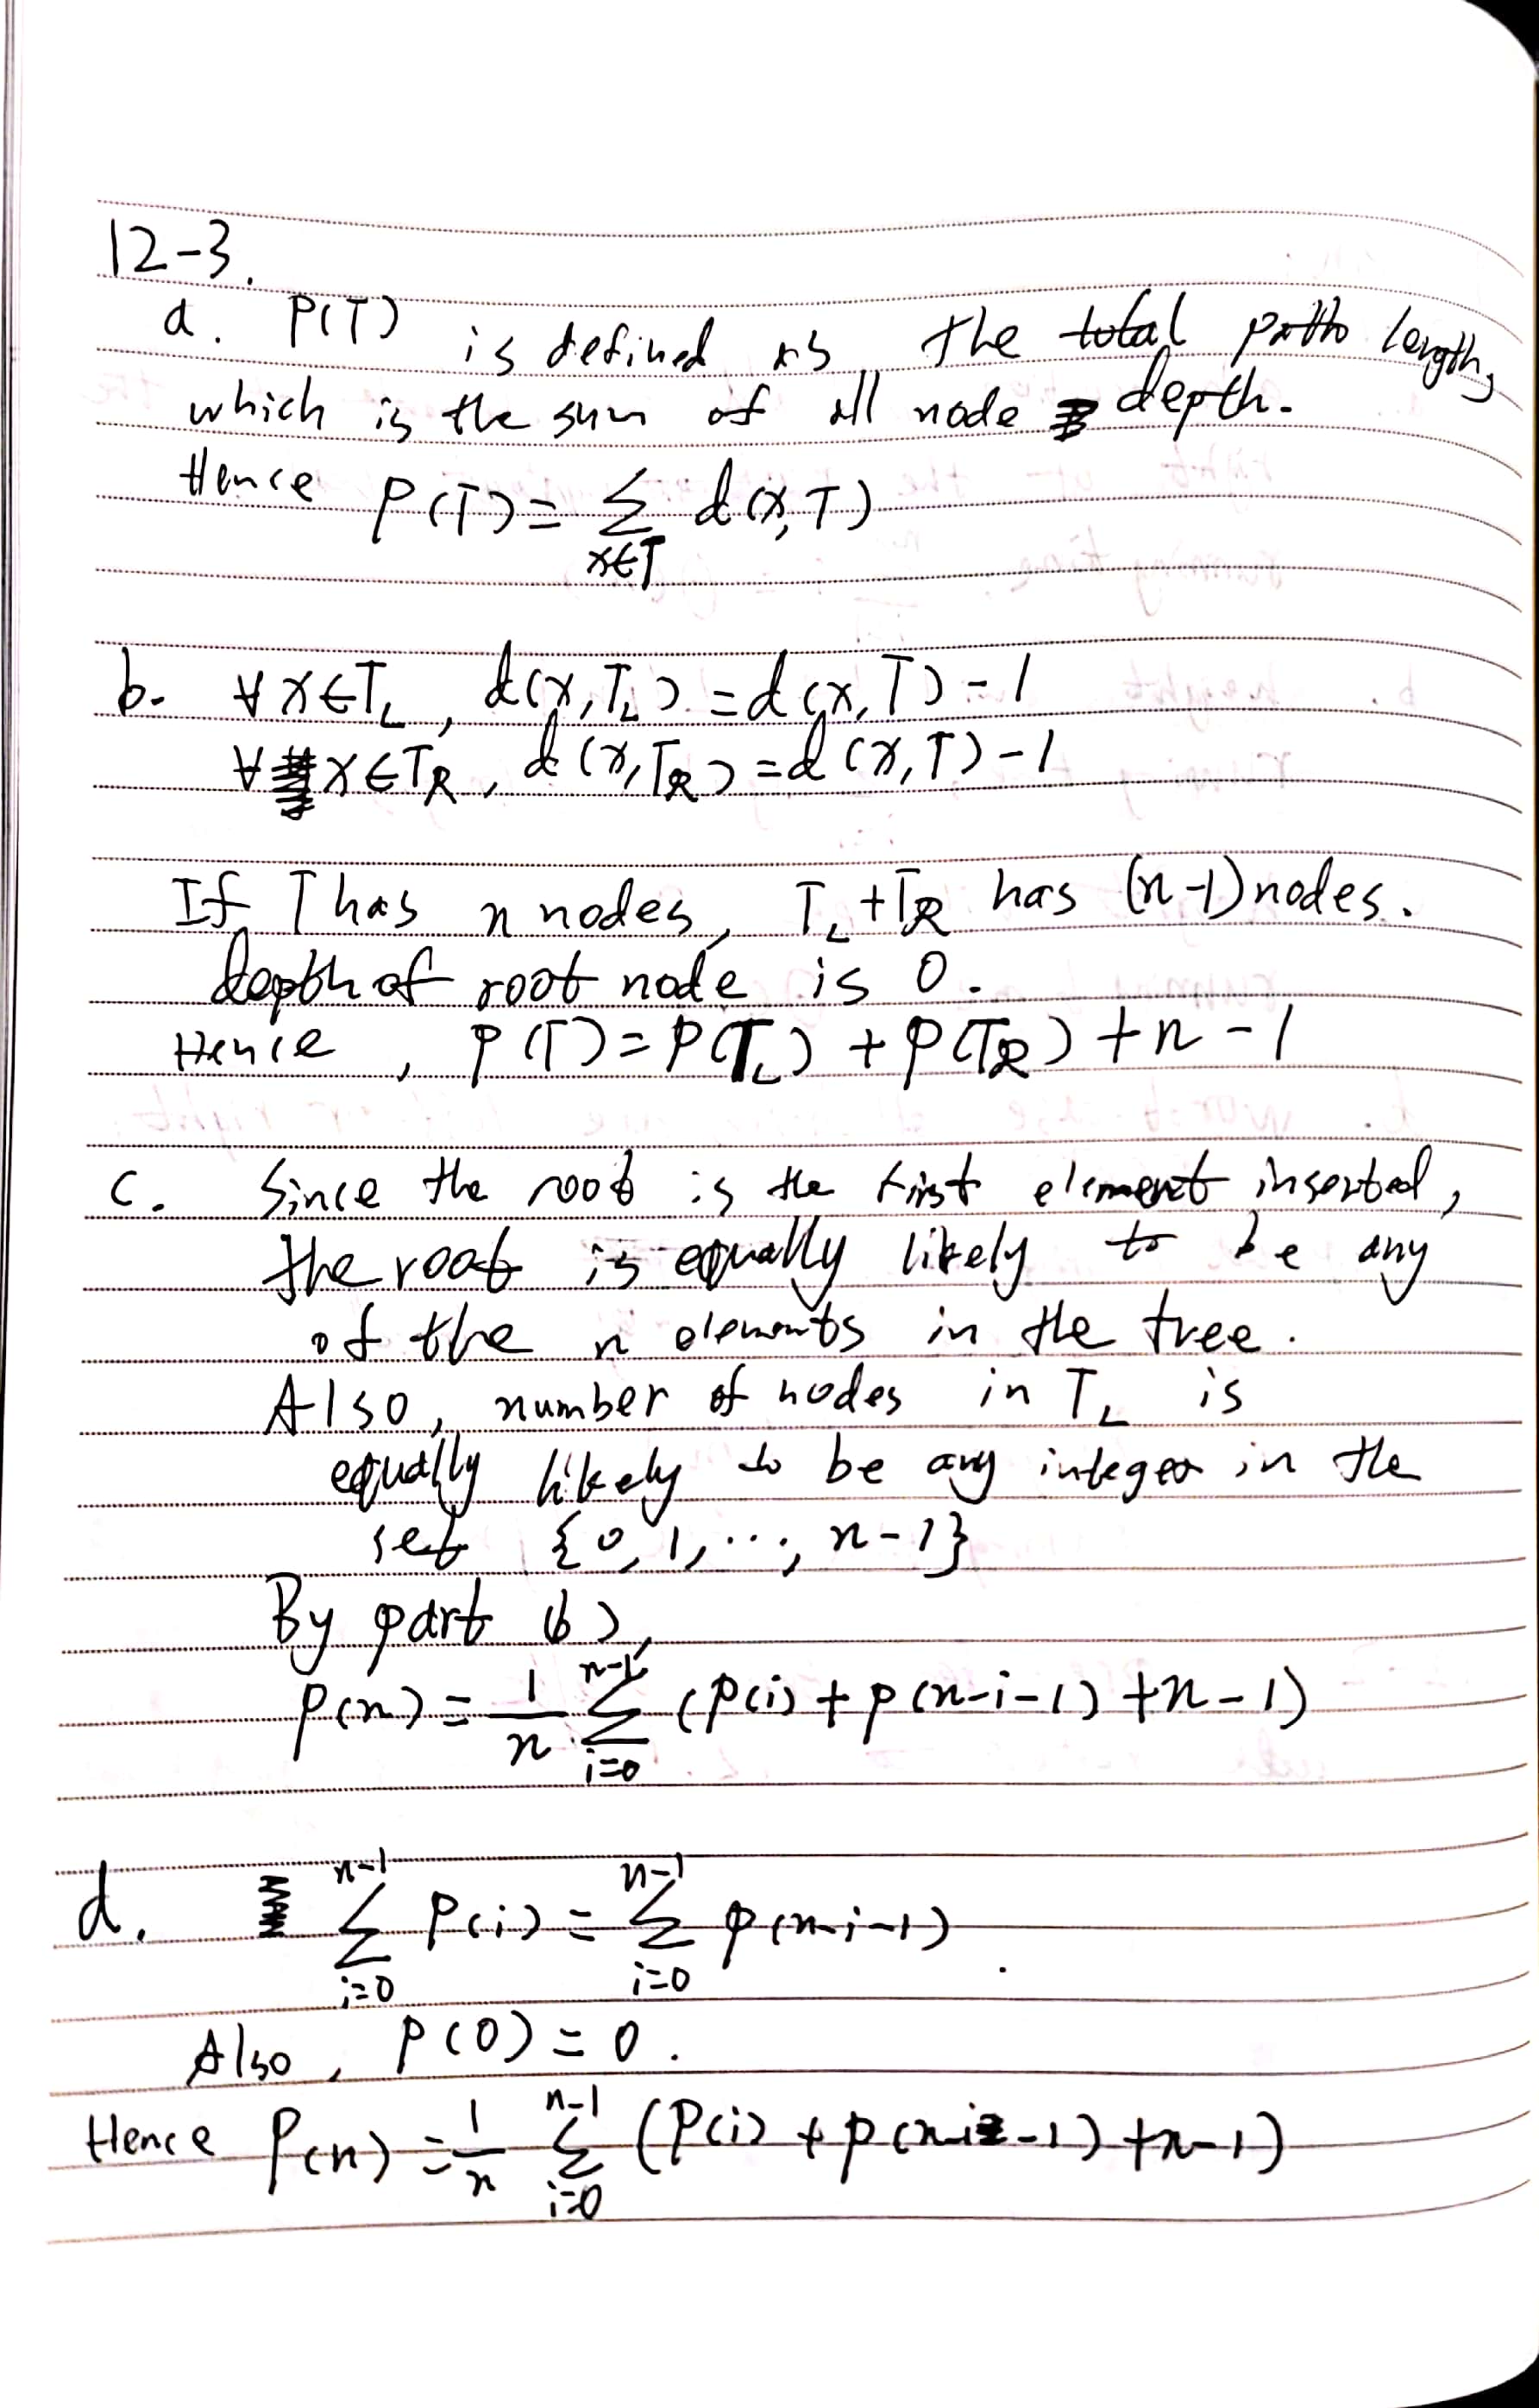 12-3.
a. P(T) is defined as the total path length,
which is the sum of all node depth.
Hence P(T) = Σ_{x∈T} d(x,T)
b. ∀x∈T_L, d(x,T_L) = d(x,T) - 1
∀x∈T_R, d(x,T_R) = d(x,T) - 1
If T has n nodes, T_L + T_R has (n-1) nodes.
depth of root node is 0.
Hence, P(T) = P(T_L) + P(T_R) + n - 1
c. Since the root is the first element inserted,
the root is equally likely to be any
of the n elements in the tree.
Also, number of nodes in T_L is
equally likely to be any integer in the
set {0, 1, ..., n-1}
By part (b),
P(n) = 1/n Σ_{i=0}^{n-1} (P(i) + P(n-i-1) + n - 1)
d. Σ_{i=0}^{n-1} P(i) = Σ_{i=0}^{n-1} P(n-i-1).
Also, P(0) = 0.
Hence P(n) = 1/n Σ_{i=0}^{n-1} (P(i) + P(n-i-1) + n-1)